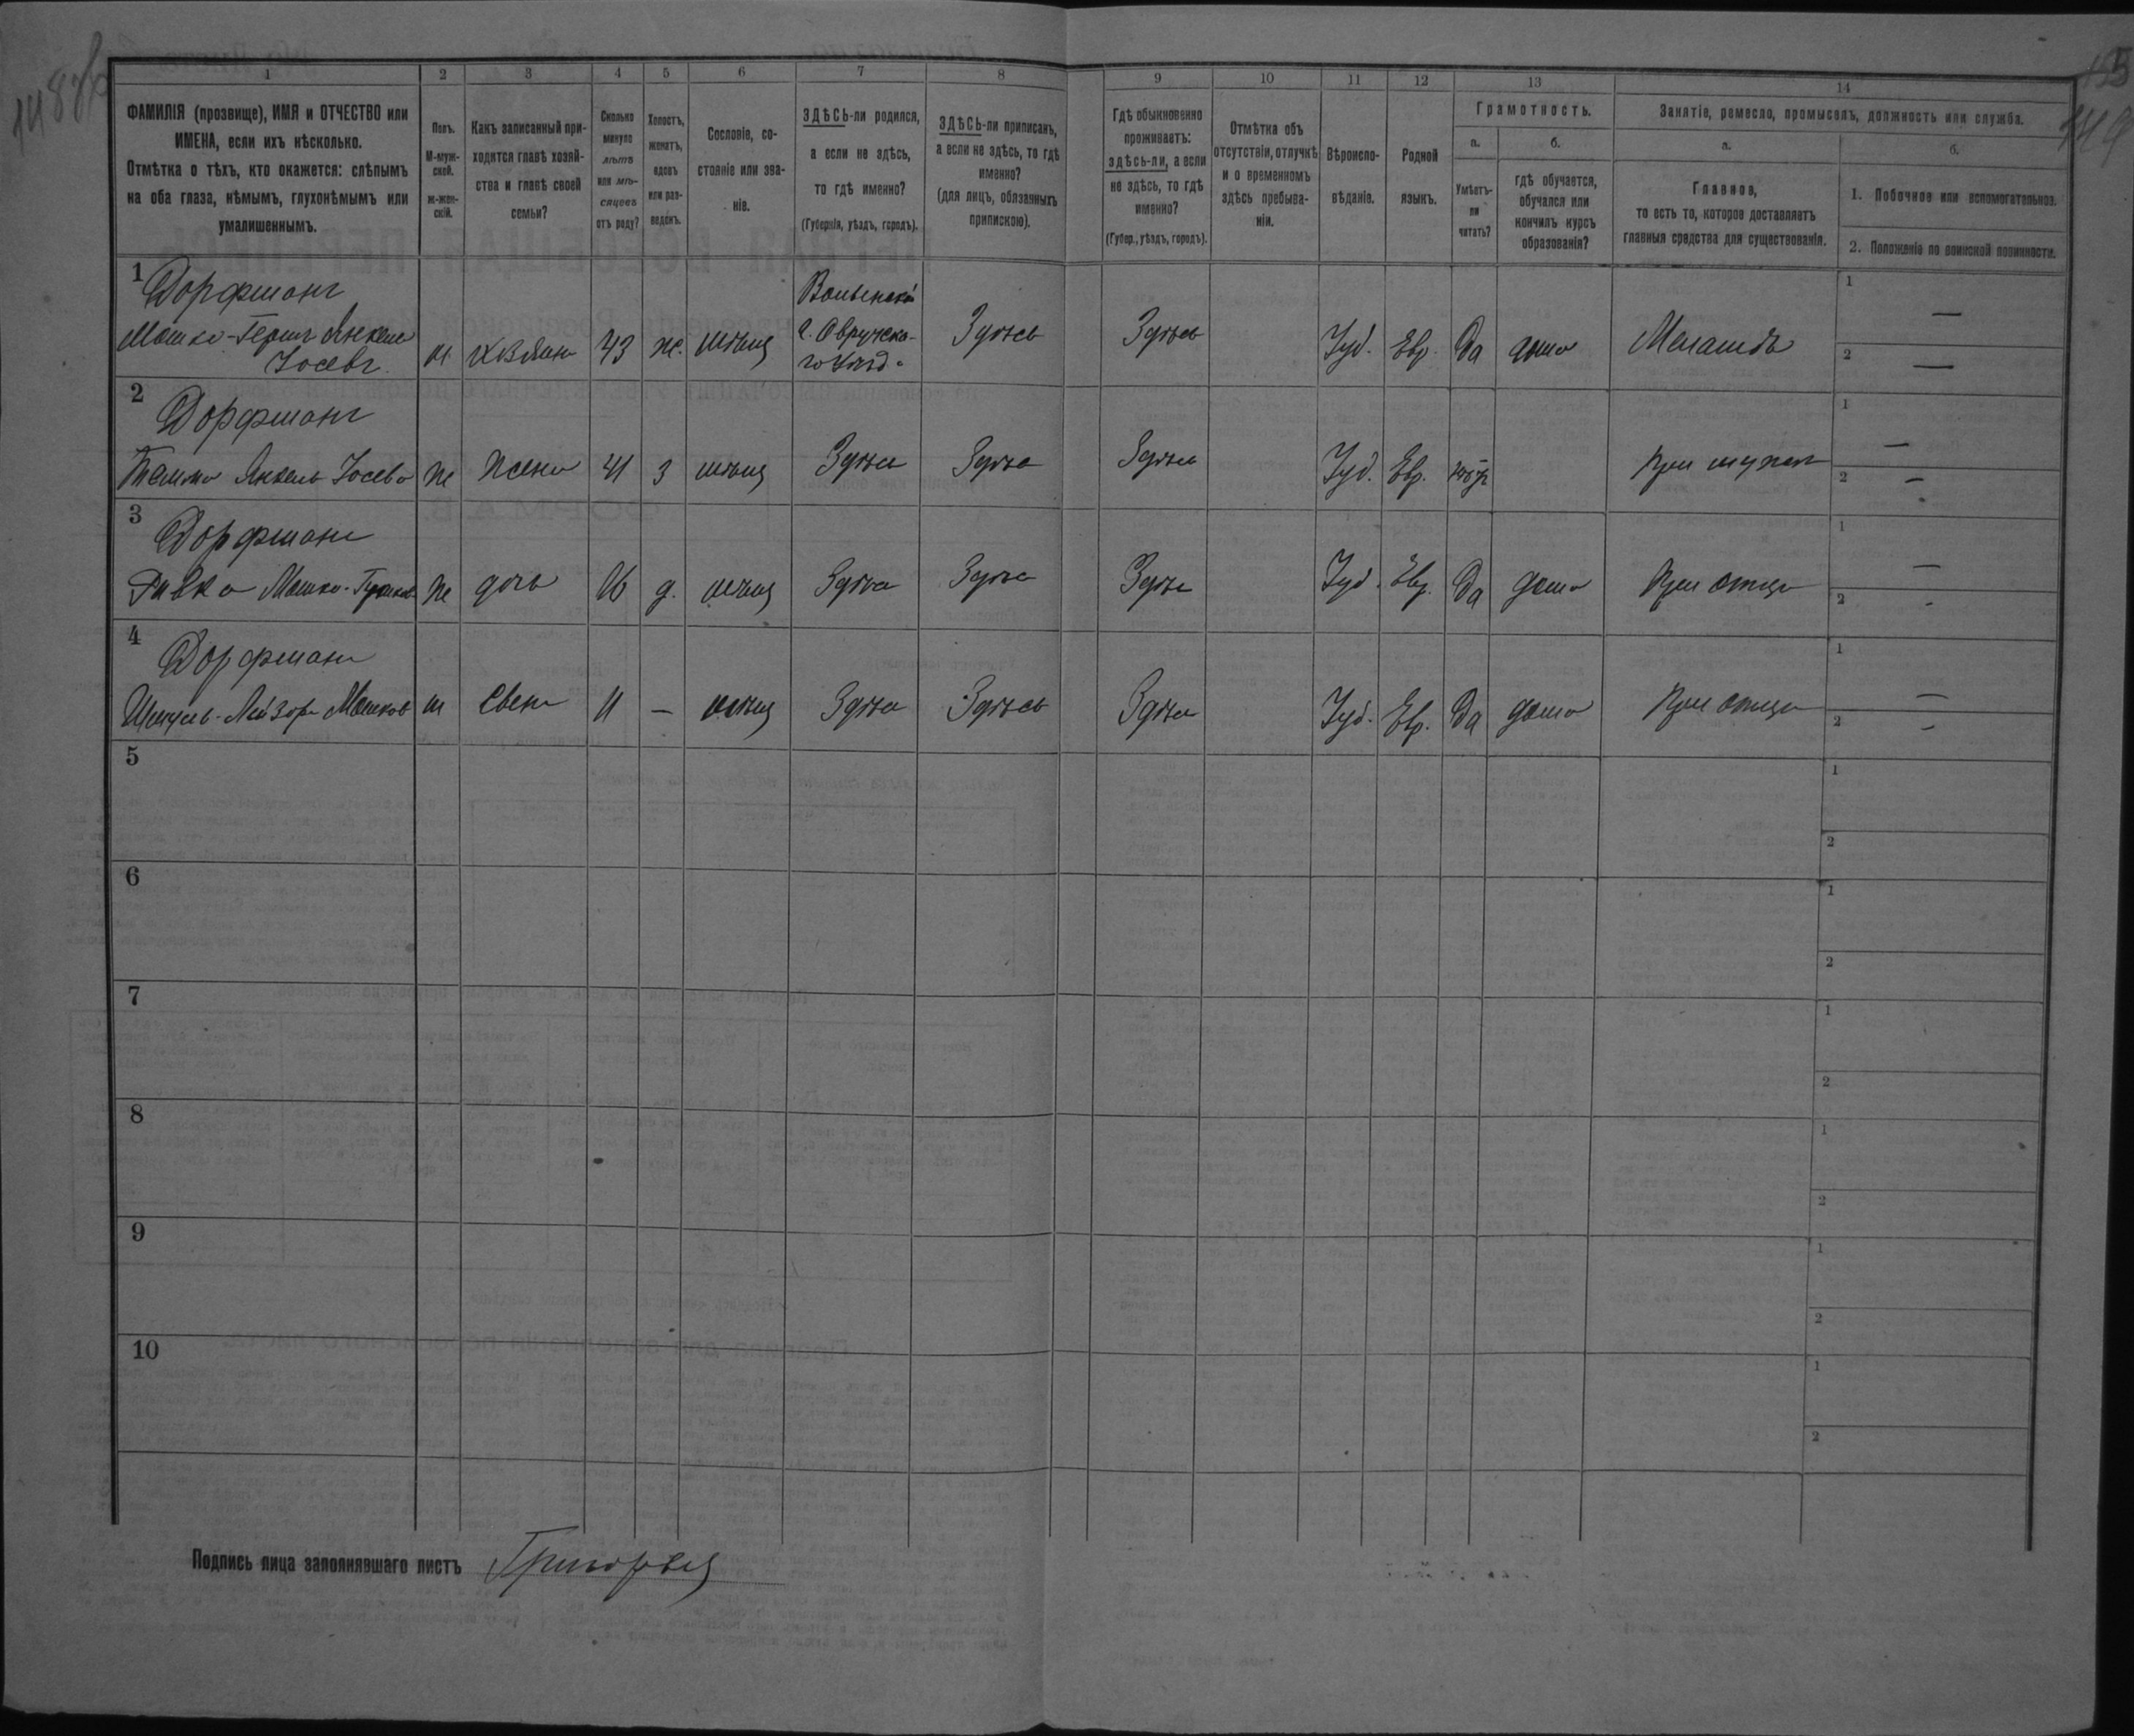 148об
155
149
1 2 3 4 5 6 7 8 9 10 11 12 13 14
ФАМИЛІЯ (прозвище), ИМЯ и ОТЧЕСТВО или
ИМЕНА, если ихъ нѣсколько.
Отмѣтка о тѣхъ, кто окажется: слѣпымъ
на оба глаза, нѣмымъ, глухонѣмымъ или
умалишеннымъ.
Полъ.
М-муж-
ской.
ж-жен-
скій.
Какъ записанный при-
ходится главѣ хозяй-
ства и главѣ своей
семьи?
Сколько
минуло
лѣтъ
или мѣ-
сяцевъ
отъ роду?
Холостъ,
женатъ,
вдовъ
или раз-
веденъ.
Сословіе, со-
стояніе или зва-
ніе.
ЗДѢСЬ-ли родился,
а если не здѣсь,
то гдѣ именно?
(Губернія, уѣздъ, городъ).
ЗДѢСЬ-ли приписанъ,
а если не здѣсь, то гдѣ
именно?
(для лицъ, обязанныхъ
припискою).
Гдѣ обыкновенно
проживаетъ:
здѣсь-ли, а если
не здѣсь, то гдѣ
именно?
(Губер., уѣздъ, городъ).
Отмѣтка объ
отсутствіи, отлучкѣ
и о временномъ
здѣсь пребыва-
ніи.
Вѣроиспо-
вѣданіе.
Родной
языкъ.
Грамотность.
а.
Умѣетъ-
ли
читать?
б.
гдѣ обучается,
обучался или
кончилъ курсъ
образованія?
Занятіе, ремесло, промыселъ, должность или служба.
а.
Главное,
то есть то, которое доставляетъ
главныя средства для существованія.
б.
1. Побочное или вспомогательное.
2. Положеніе по воинской повинности.
1 Дорфманъ
Мошко-Герш Янкель
Іосевъ м хозяин 43 ж. мѣщ
Волынской
г. Овручска-
го Уѣзд.
Здѣсь Здѣсь Іуд. Евр. Да дома Меламедъ 1 — 2 —
2 Дорфманъ
Янкель Іосева ж жена 41 з мѣщ Здѣсь Здѣсь Здѣсь Іуд. Евр. при мужѣ 1 — 2 —
3 Дорфман
Ривка Мошко- ж дочь 16 д. мѣщ Здѣсь Здѣсь Здѣсь Іуд. Евр. Да дома при отцѣ 1 — 2 -
4 Дорфман
Шмуль-Лейзор Мошков м Свен 11 — мѣщ Здѣсь Здѣсь Здѣсь Іуд. Евр. Да дома при отцѣ 1 — 2 —
5 1 2
6 1 2
7 1 2
8 1 2
9 1 2
10 1 2
Подпись лица заполнявшаго листъ